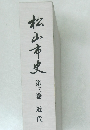 松山市史
第三巻 近代